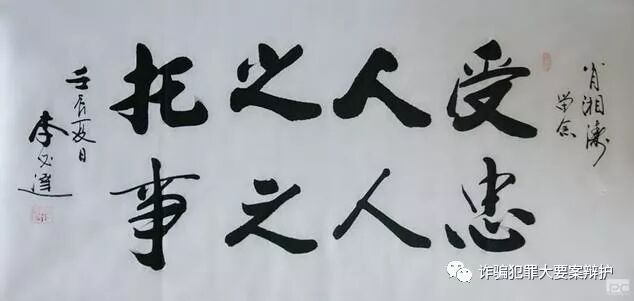 肖湘
留念
受人之托
忠人之事
壬辰夏日
李必達
诈骗犯罪大要案辩护